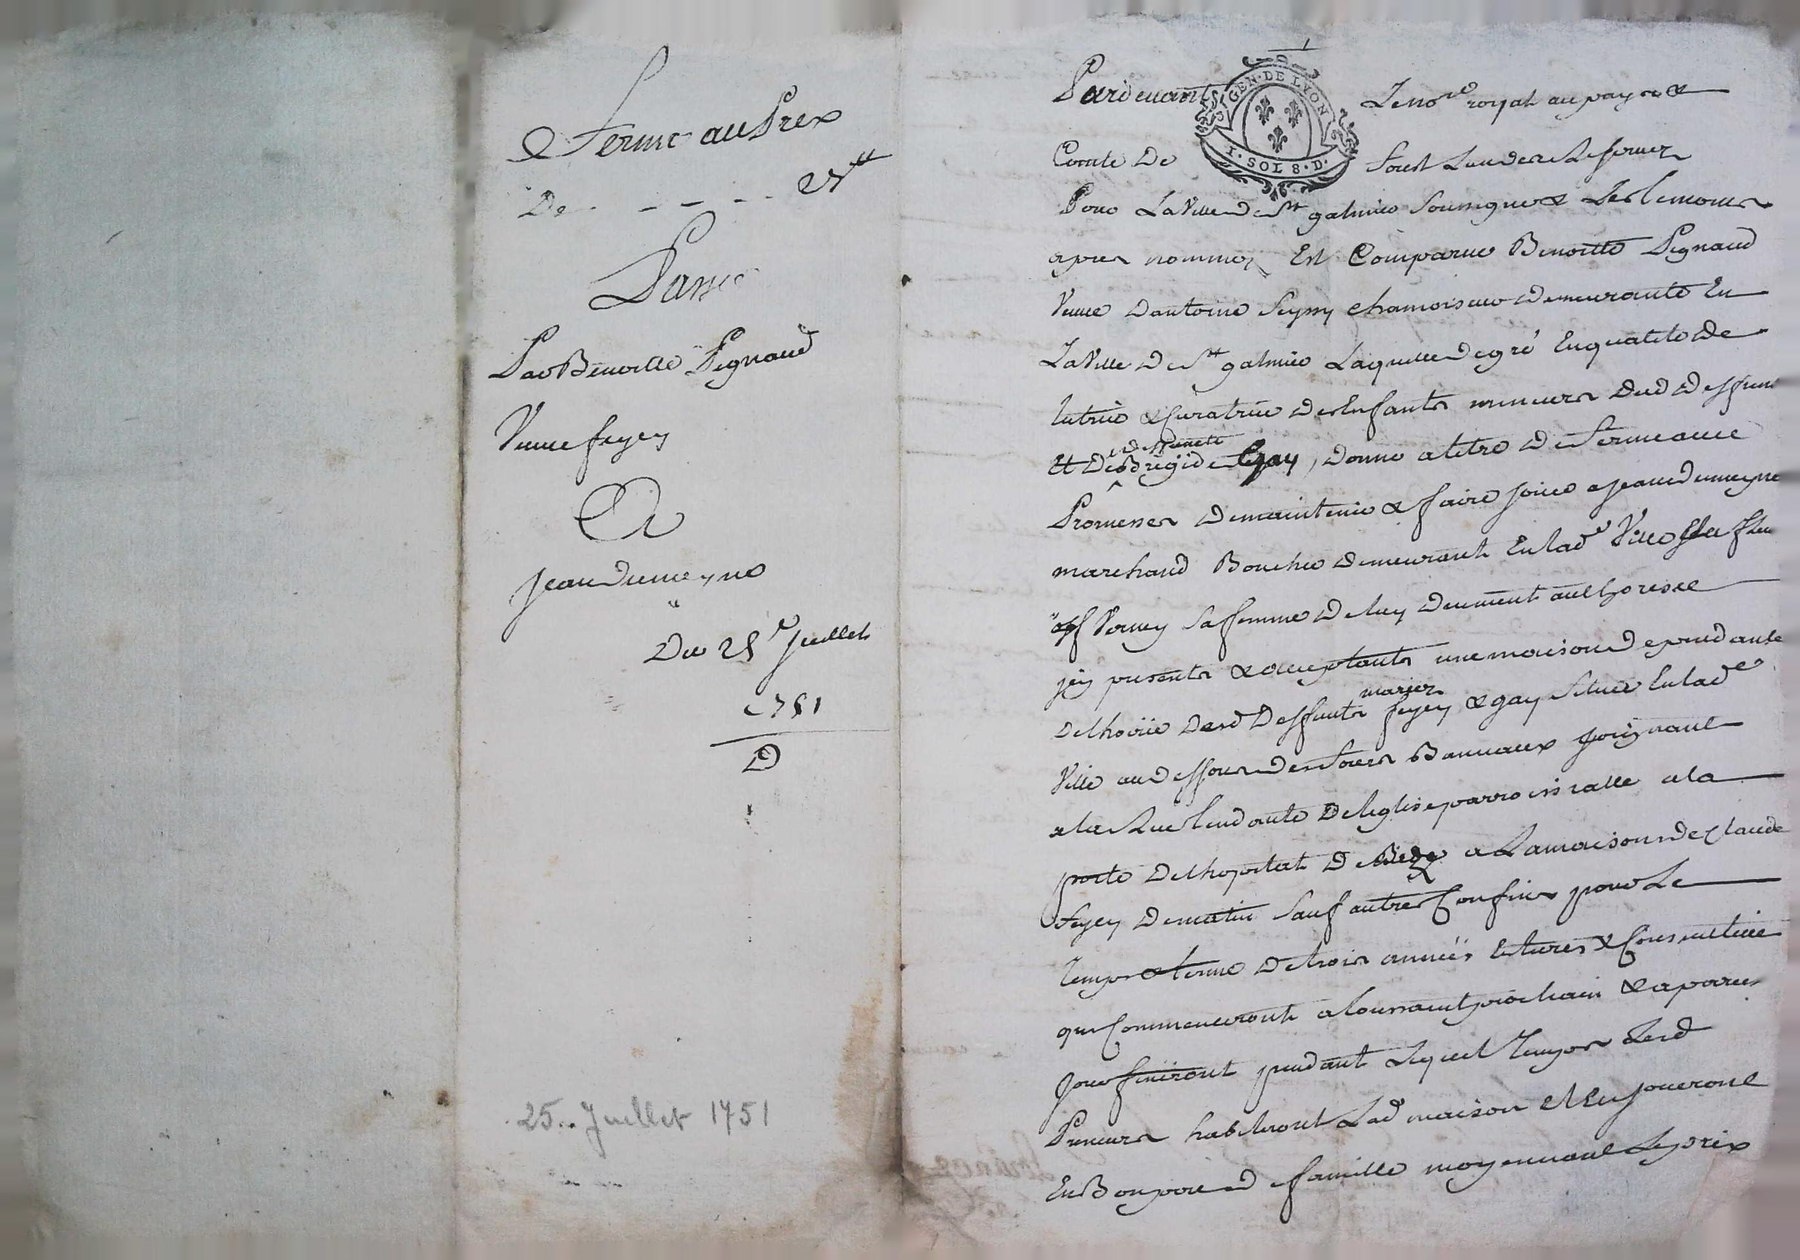 Ferme au Prix
De - - - - 25tt
Passé
Par Benoitte Pignaud
Veuve feyey
A
Jean Dumeyne
Du 25e Juillet
1751
D
25.. Juillet 1751
Pardevant Le nore royal au pays &
GEN·DE LYON
Comté De forest Lieu de Reserver
1·SOL 8·D.
Pour La Ville de St galmier soussigné & Les temoins
apres nommez Est Comparue Benoitte Pignaud
Veuve dantoine feyey chamoiseur demeurante En
La Ville de St galmier Laquelle de gré En qualité de
tutrice & Curatrice des Enfants mineurs dud deffunt
deffuncte
Et de Brigide Gay, donne a titre de ferme avec
Promesse de maintenir & faire jouir a jean dumeyne
marchand Boucher demeurant En lad Ville &
Verney sa femme de luy deument authorisée
jcy presents & acceptants une maison dependante
marier
de lhoirie desd deffunts feyey & gay Scituée En lade
Ville au dessous des fours Bannaux joignant
a la Rue tendante de leglise parroissialle a la
porte de lhopital de Bize a La maison de Claude
feyey de matin sauf autres Confins pour Le
temps & terme de trois années Entieres & Consecutives
qui Commenceront a toussaint prochain & a pareil
jour finiront pendant Lequel temps Lesd
Preneurs habiteront Lad maison Et En joueront
En Bon pere de famille moyennant Le prix